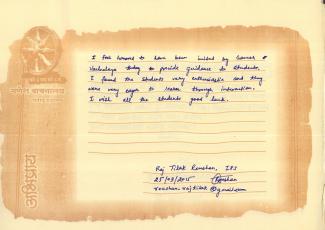 I feel honored to have been invited by Ganesh
Vachnalaya today to provide guidance to students.
I found the students very enthusiastic and they
were very eager to learn through interaction.
I wish all the students good luck.
Raj Tilak Roushan, IPS
25/03/2015
roushan.rajtilak@gmail.com
गणेश वाचनालय
अभिप्राय